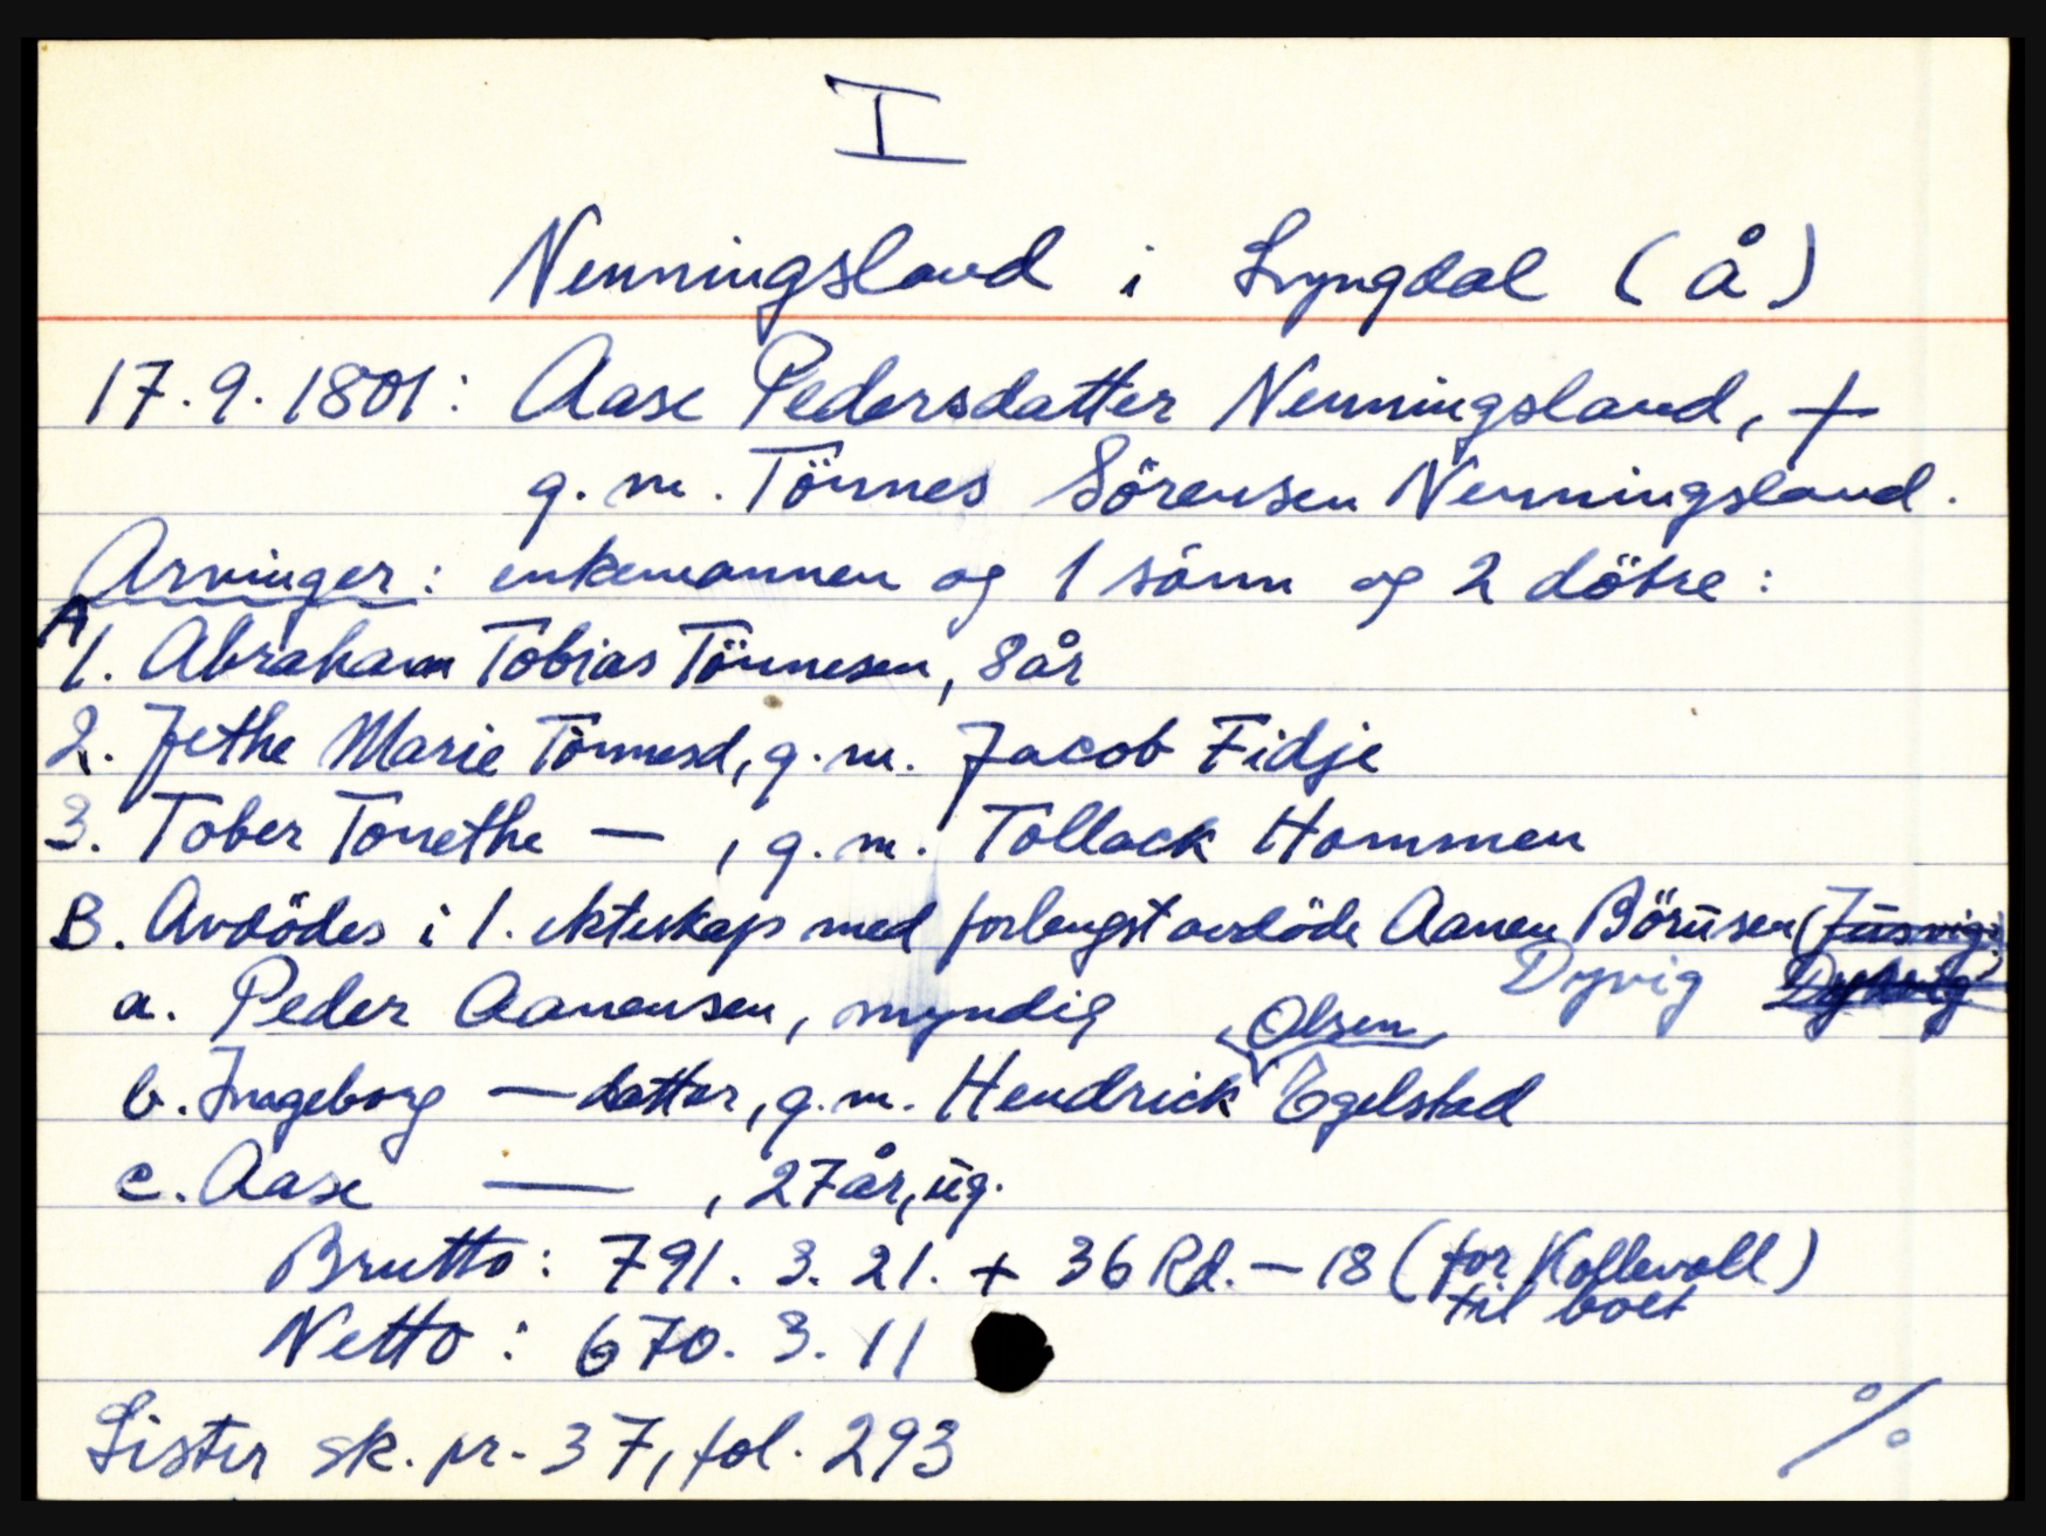 I
Nenningsland i Lyngdal (Å)
17.9.1801: Aase Pedersdatter Nenningsland, +
g.m. Tönnes Sörensen Nenningsland.
Arvinger: enkemannen og 1 sönn og 2 dötre:
A
1. Abraham Tobias Tönnesen, 8 år
2. Jethe Marie Tönnesd, g.m. Jacob Fidje
3. Tober Tonethe — , g.m. Tollack Hommen
B. Avdödes i 1. ekteskap med forlengst avdöde Aanen Börüsen
Dyvig
a. Peder Aanensen, myndig
Olsen
b. Ingeborg — datter, g.m. Hendrick Egelstad
c. Aase — , 27 år, üg.
Brutto: 791. 3. 21. + 36 Rd. — 18 (for Kollevoll)
til boet
Netto: 670. 3. 11
Lister sk. pr. 37, fol. 293
%